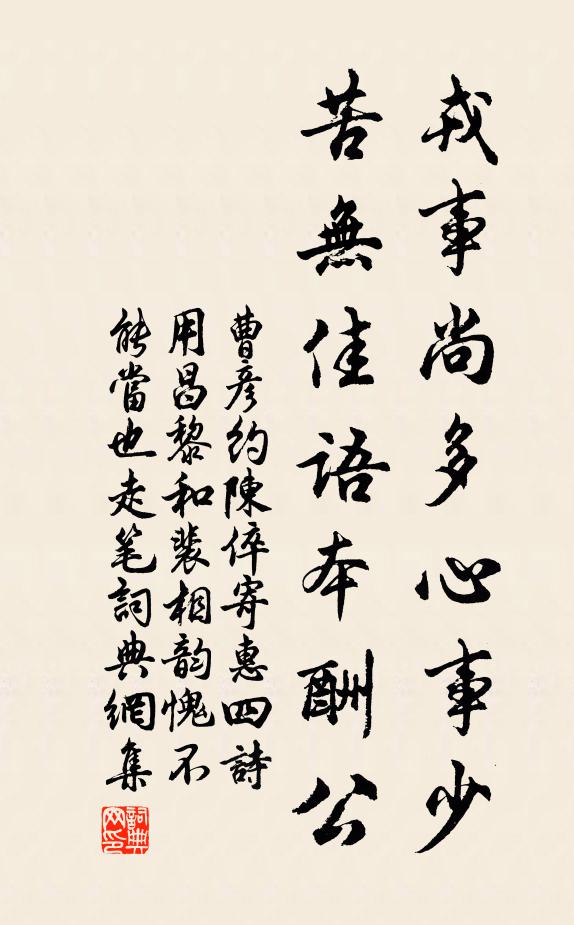 戎事尚多心事少
苦無佳語本酬公
曹彦約陳倅寄惠四詩
用昌黎和裴相韵愧不
能當也走笔詞典網集
詞典網印